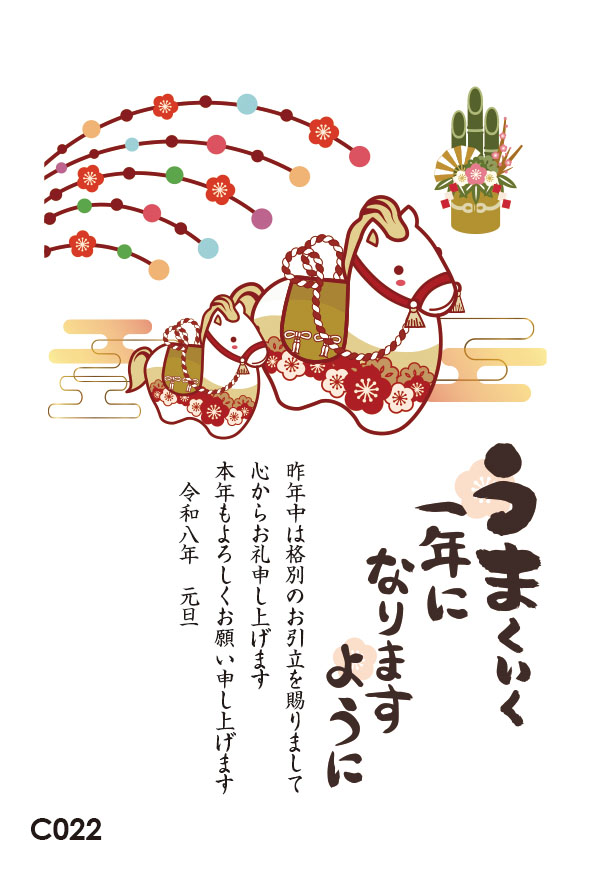 うまくいく
一年に
なります
ように
昨年中は格別のお引立を賜りまして
心からお礼申し上げます
本年もよろしくお願い申し上げます
令和八年　元旦
C022